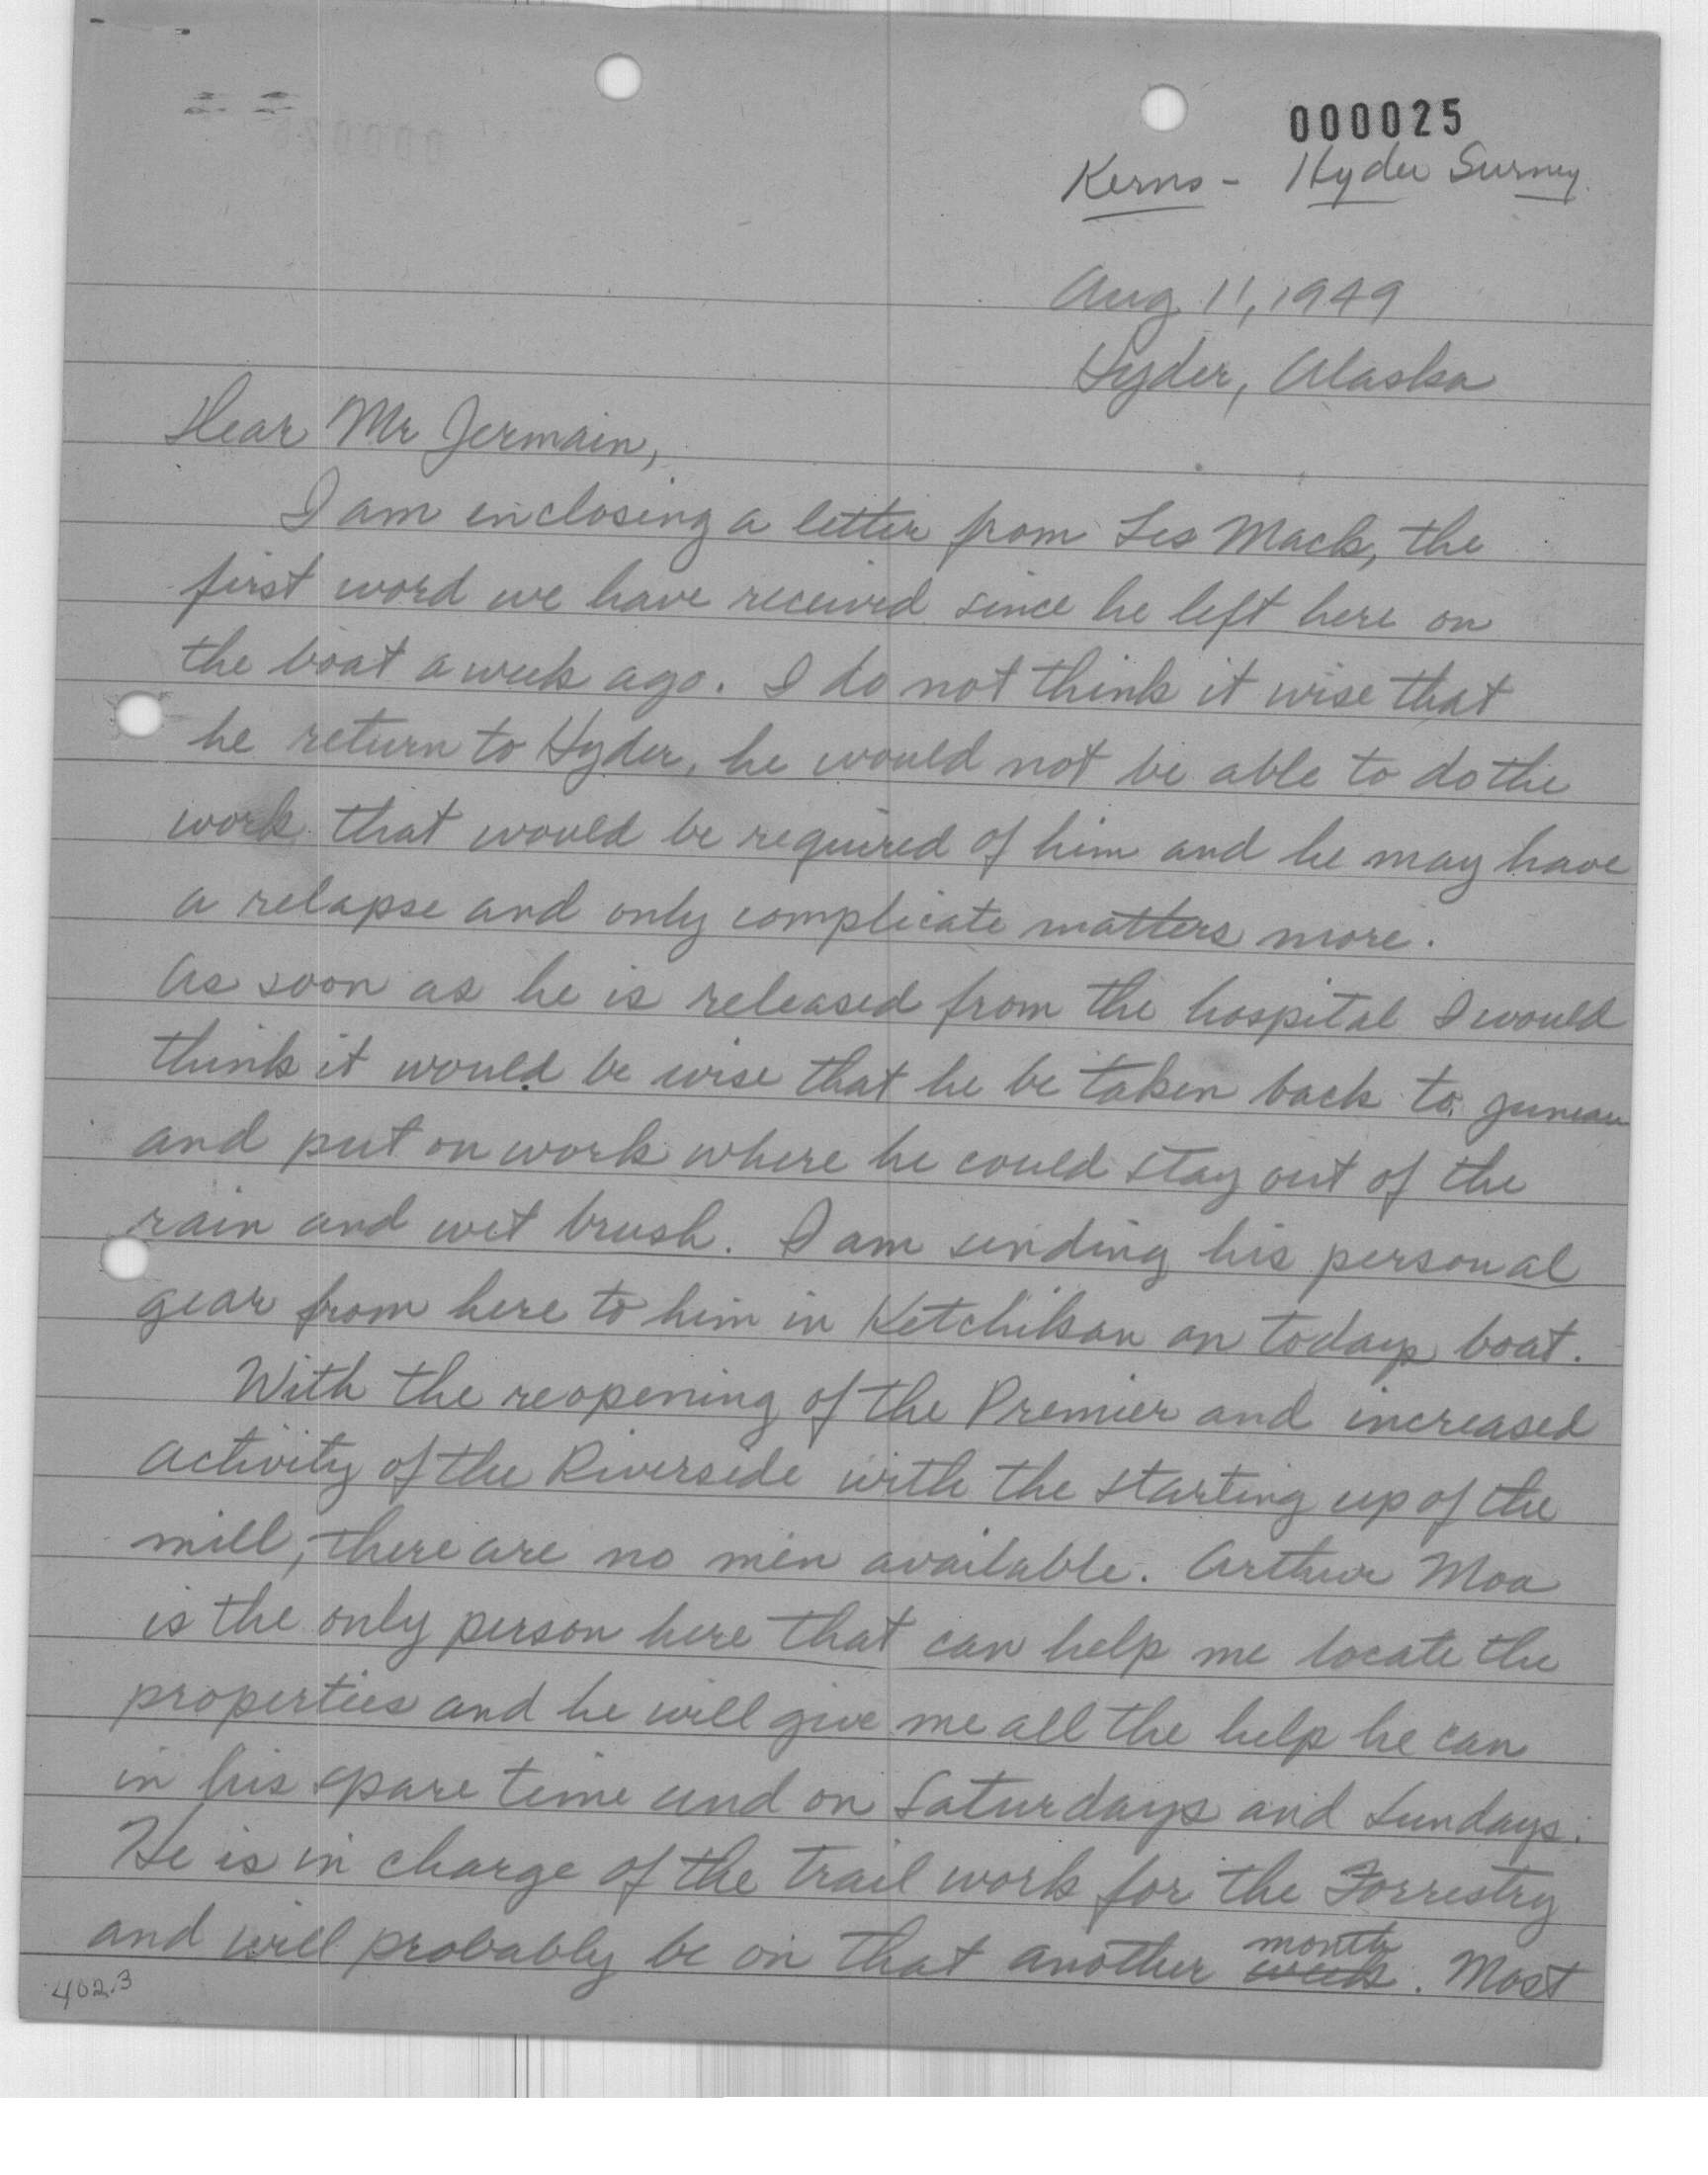 000025
Kerns - Hyder Survey.
Aug 11, 1949
Hyder, Alaska
Dear Mr Jermain,
I am enclosing a letter from Les Mack, the
first word we have received since he left here on
the boat a week ago. I do not think it wise that
he return to Hyder, he would not be able to do the
work that would be required of him and he may have
a relapse and only complicate matters more.
As soon as he is released from the hospital I would
think it would be wise that he be taken back to Juneau
and put on work where he could stay out of the
rain and wet brush. I am sending his personal
gear from here to him in Ketchikan on todays boat.
With the reopening of the Premier and increased
activity of the Riverside with the starting up of the
mill, there are no men available. Arthur Moa
is the only person here that can help me locate the
properties and he will give me all the help he can
in his spare time and on Saturdays and Sundays.
He is in charge of the trail work for the Forrestry
month
and will probably be on that another week. Most
402.3